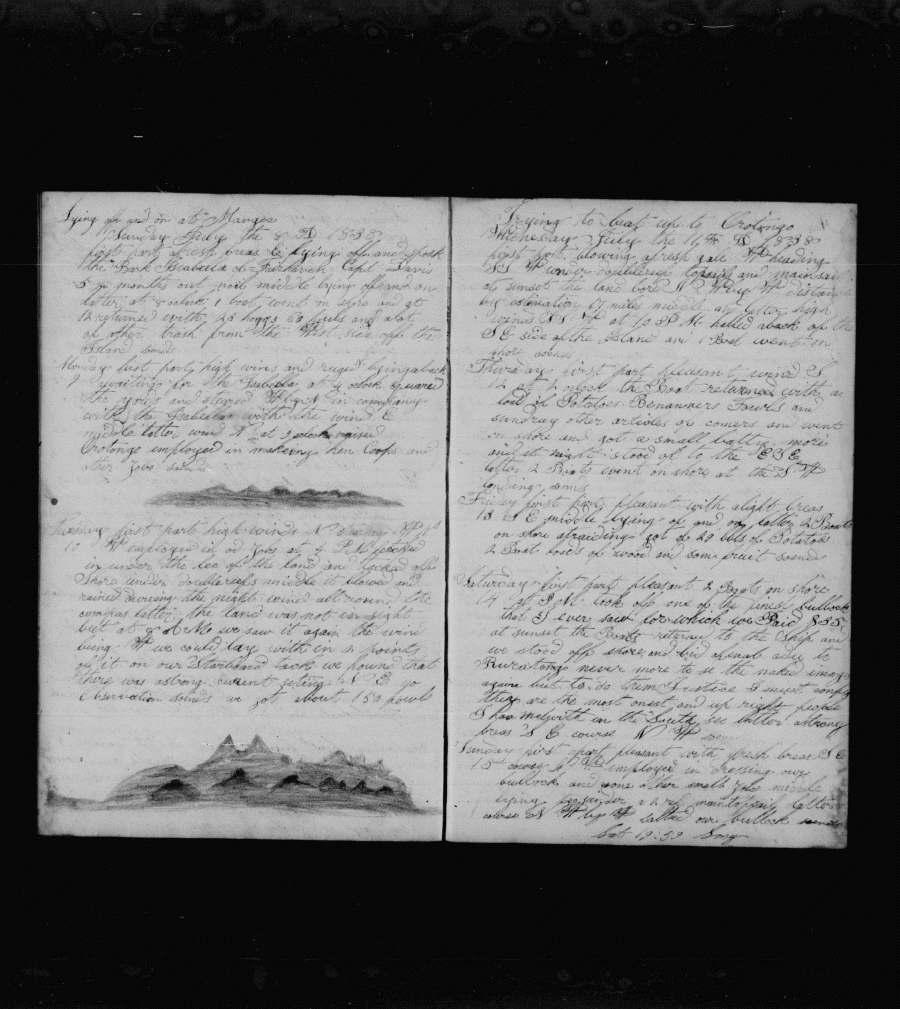 Lying off and on at Mangea
Sunday July the 8 AD 1838
first part afresh breas E lying off and spok
the Bark Isabella of Fairhaven Capt Davis
5 months out middle lying of and on
latter at 8 oclock 1 boat went on shore and at
12 returned with 28 hoggs 60 fowls and alot
of other trash from the West side off the
Island sounds
Monday last part high wins and ruged lying aback
9 waiting for the Isabella at 4 oclock squared
the yards and steared W by N in company
with the Isabella with the wind E
middle latter wind N at 9 oclock raised
Orotongo employed in makeing hen coops and
other jobs sounds
Tuesday first part high winds N
10 W employed in od jobs at 4 PM
in under the lee of the land and off
Shore under doublereefs middle it blowed and
rained dureing the night wined all round the
compas latter the land was not in sight
but at 8 A M we saw it again the wind
being W we could lay with in 2 points
of it on our Starboard tack we found that
there was astrong current seting N E
observation sounds we got about 150 fowls
Trying to beat up to Orotongo
Wednesday July the 11 AD 1838
first part blowing afresh gale W heading
S S W under doublereefs topsails and mainsail
at sunset the land bore N W by W distance
by estimation 17 miles middle and latter
winds at 10 A M halled aback off the
S E side of the Island and 1 Boat went on
shore sounds
Thursday first part pleasant wind S
12 at 2 oclock the Boat returned with a
load of Potatoes Benanners Fowls and
sundray other articles of comers and went
on shore and got a small more
and at night stood of to the E S E
latter 2 Boats went on shore at the S W
landing sounds
Friday first part pleasant with alight breas
13 S E middle lying of and on latter 2 Boats
on shore atraiding got of 29 bbls of Potatoes
2 Boat loads of wood and som fruit sounds
Saturday first part pleasant 2 Boats on shore
14 at P M took off one of the finest bullock
that I ever saw for which we Paid $35
at sunset the Boats returned to the Ship and
we stood off shore and bid afinal adieu to
Ruratonga never more to se the naked
again but to do them Justice I must
they are the most onest and up right people
I has met with in the South latter astrong
breas S E course N W
Sunday first part pleasant with fresh breas S E
15 course N W employed in dressing our
bullock and som other small jobs middle
lying under a maintopsail latter
course N W by W salted our bullock sounds
Lat 19:59